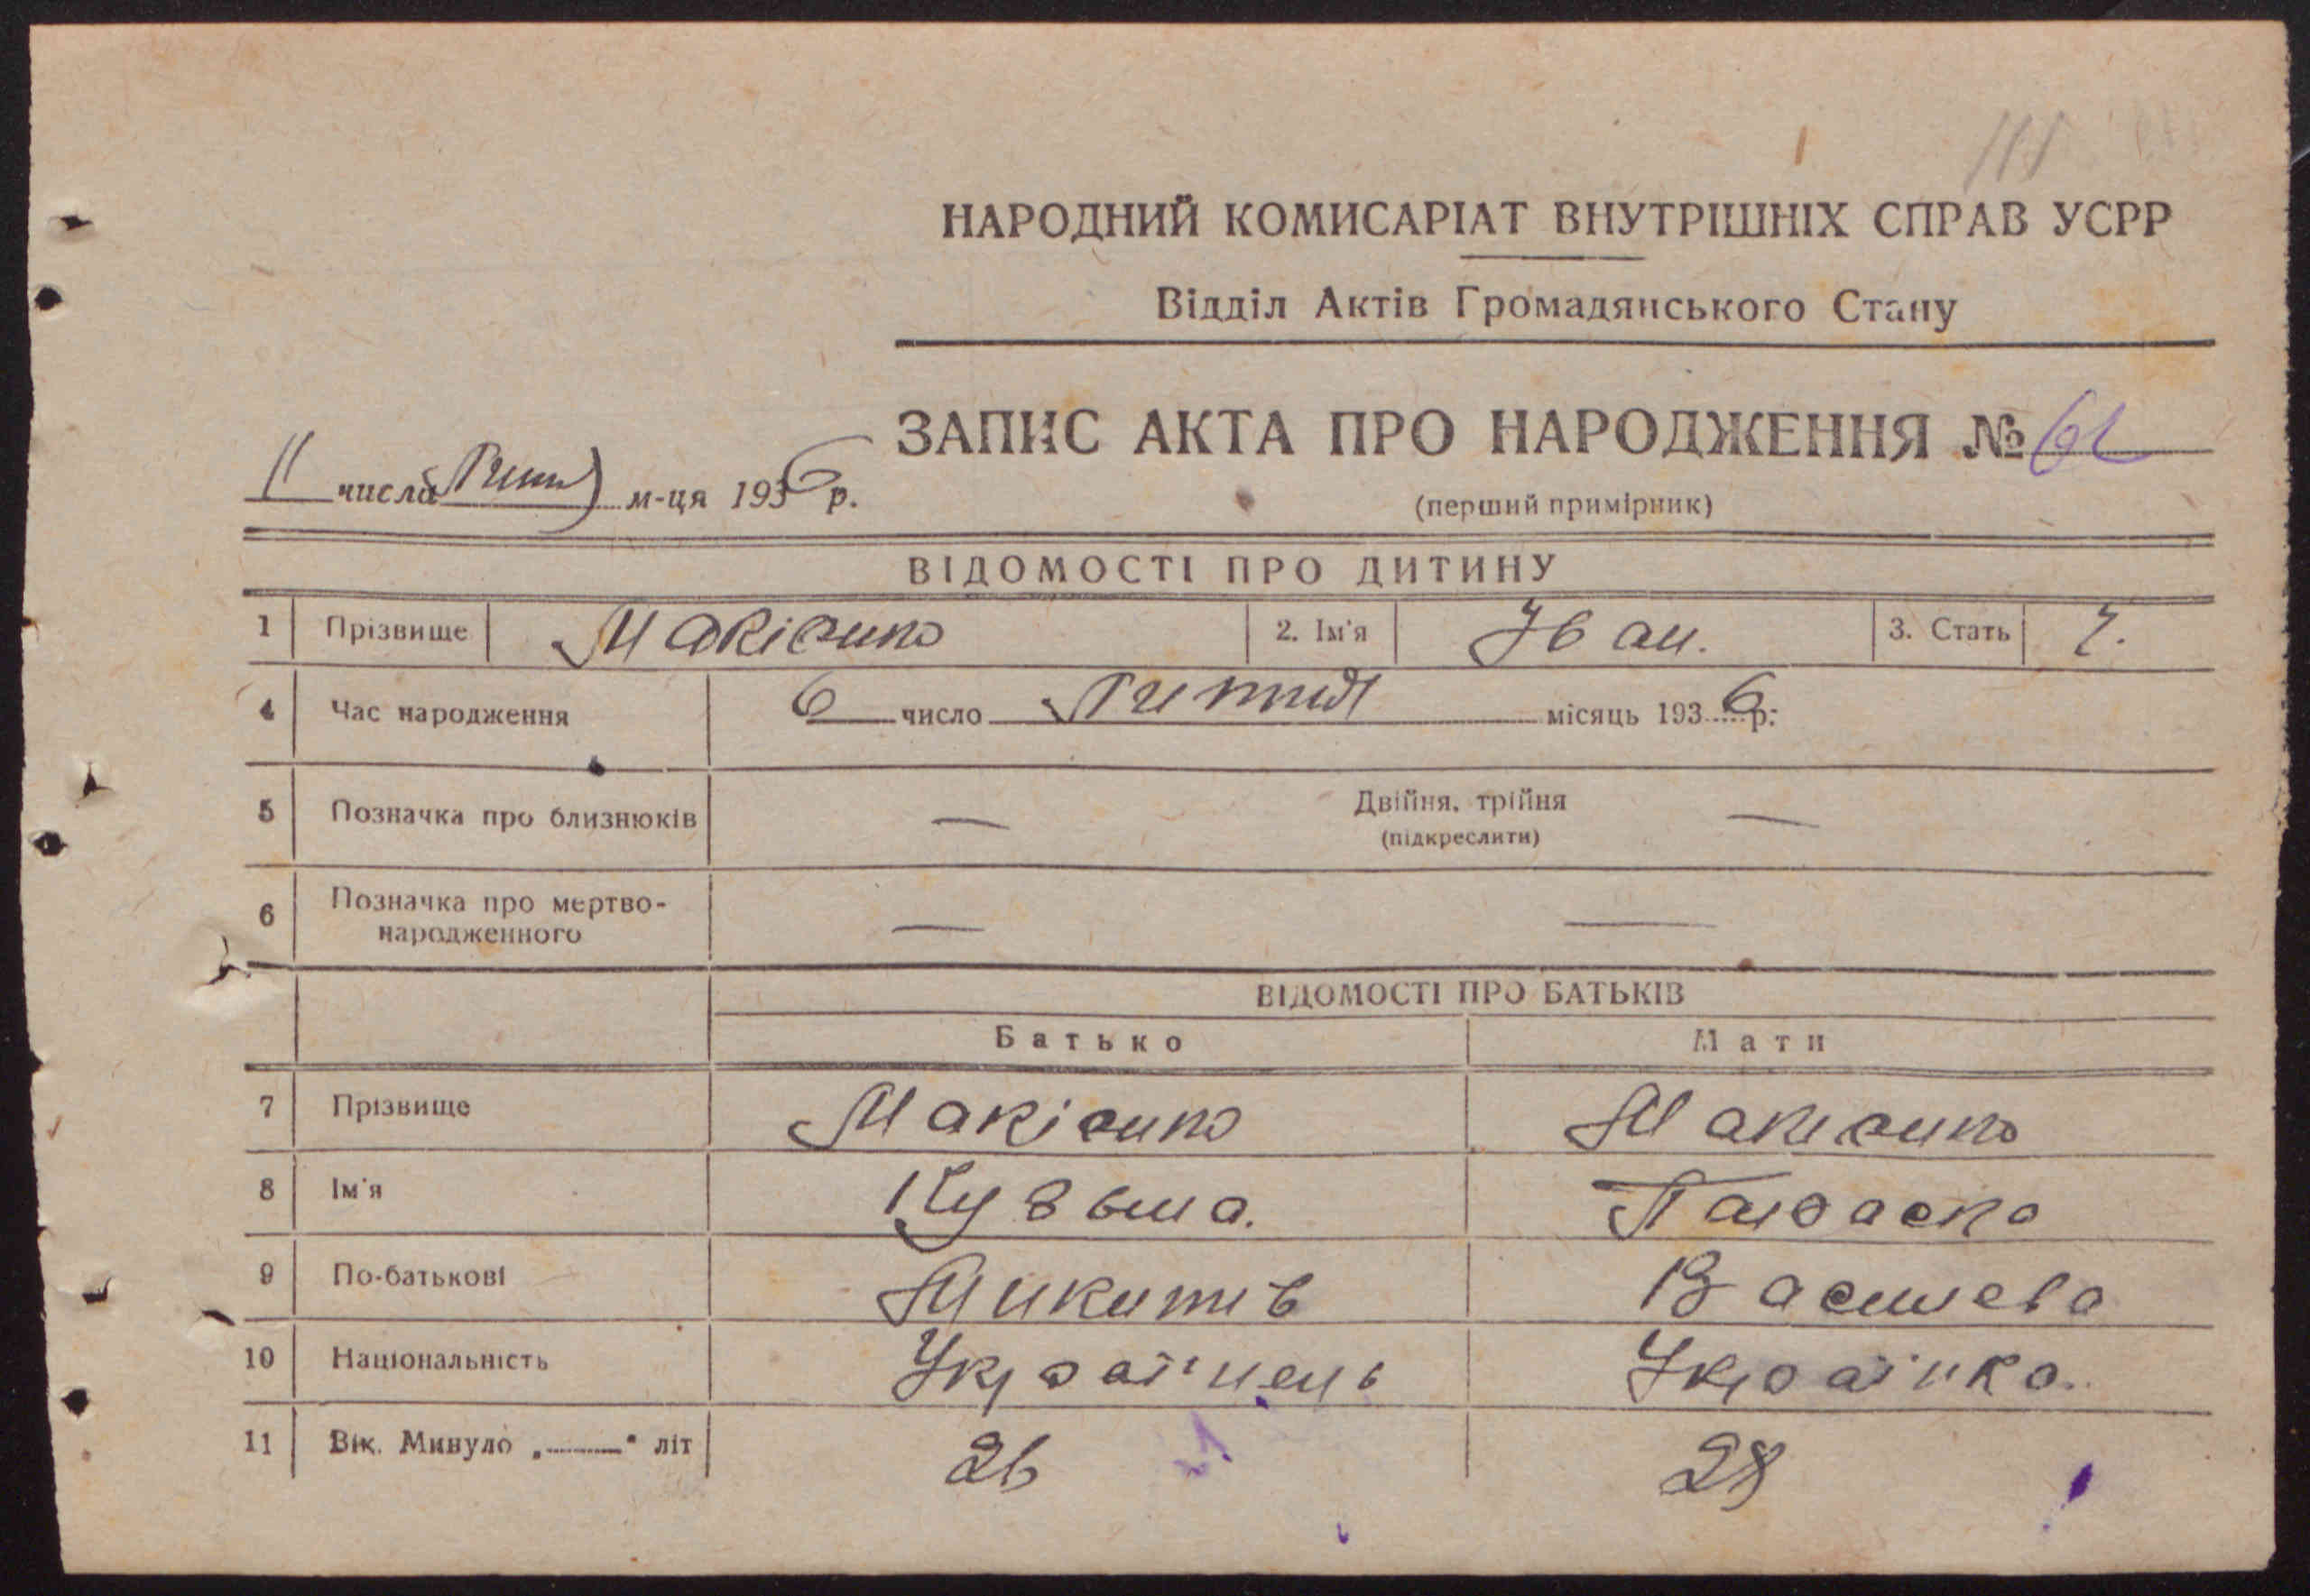 111
НАРОДНИЙ КОМИСАРІАТ ВНУТРІШНІХ СПРАВ УСРР
Відділ Актів Громадянського Стану
ЗАПИС АКТА ПРО НАРОДЖЕННЯ №
11 числа м-ця 1936 р.
(перший примірник)
ВІДОМОСТІ ПРО ДИТИНУ
1 Прізвище 2. Ім'я Іван. 3. Стать Ч.
4 Час народження 6 число місяць 1936 р.
5 Позначка про близнюків — Двійня, трійня —
(підкреслити)
6 Позначка про мертво-
народженного — —
ВІДОМОСТІ ПРО БАТЬКІВ
Батько Мати
7 Прізвище
8 Ім'я Кузьма. Параска
9 По-батькові Микитив Василева
10 Національність Українець Українка.
11 Вік. Минуло „——“ літ 26 28